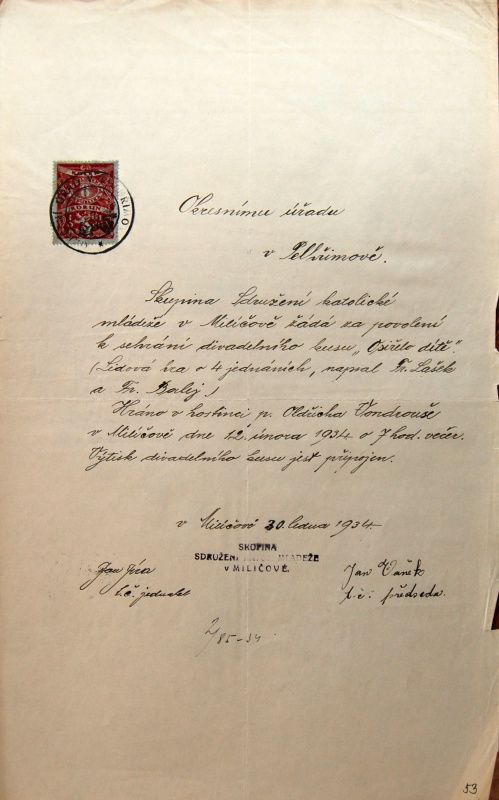 Okresnímu úřadu
v Pelhřimově.
Skupina Sdružení katolické
mládeže v Milíčově žádá za povolení
k sehrání divadelního kusu „Osiřelo dítě".
(Lidová hra o 4 jednáních, napsal Fr. Lašek
a Fr. Balej.)
Hráno v hostinci p. Oldřicha Vondrouše
v Milíčově dne 12. února 1934 o 7 hod. večer.
Výtisk divadelního kusu jest připojen.
v Milíčově 30. ledna 1934.
SKUPINA
SDRUŽENÍ MLÁDEŽE
v MILÍČOVĚ.
Jan
t.č. jednatel
Jan Vaněk
t.č. předseda.
2/85-34
53